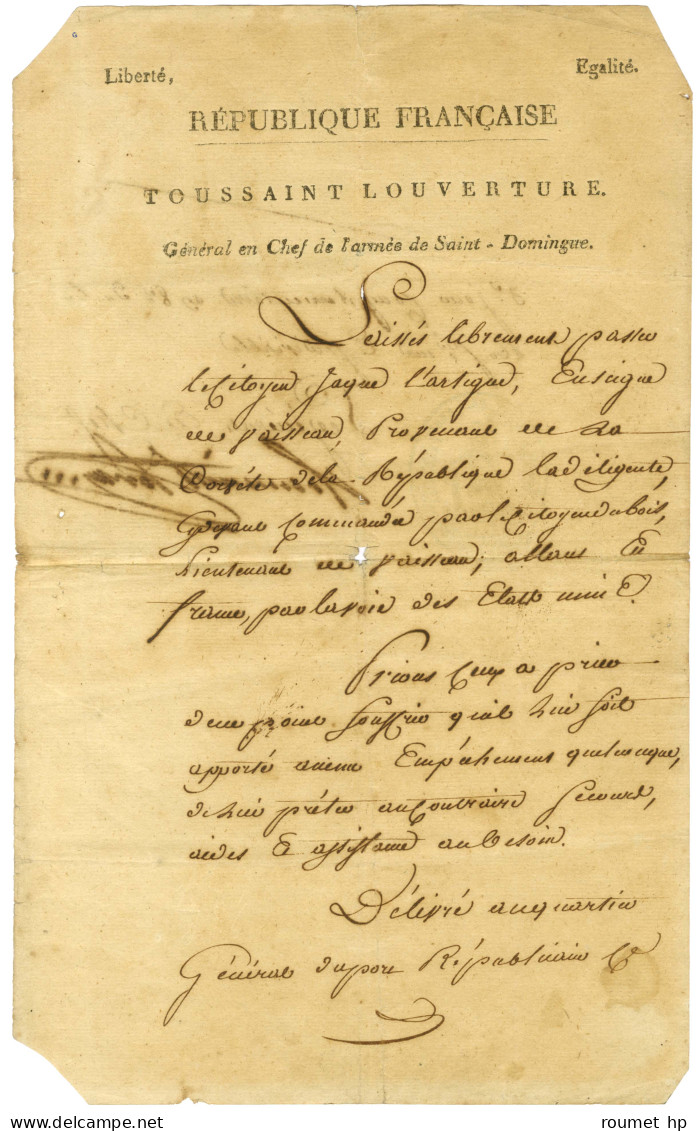 Liberté, Egalité.
RÉPUBLIQUE FRANÇAISE
TOUSSAINT LOUVERTURE.
Général en Chef de l'armée de Saint-Domingue.
Laissés librement passer
le Citoyen Jaque l'artigue, Enseigne
de vaisseau, Provenant de La
Corvéte de la République la diligente,
Cydevant Commandée par le Citoyen dubois,
Lieutenant de vaisseau, allant En
france, par la voie des Etats unis &.
Prions Ceux a prier
de ne point Souffrir qu'il Lui soit
apporté aucun Empéchement quelconque,
de Lui préter au Contraire Secours,
aides & assistance au besoin.
Délivré au quartier
Général du port Républicain Ce
roumet hp